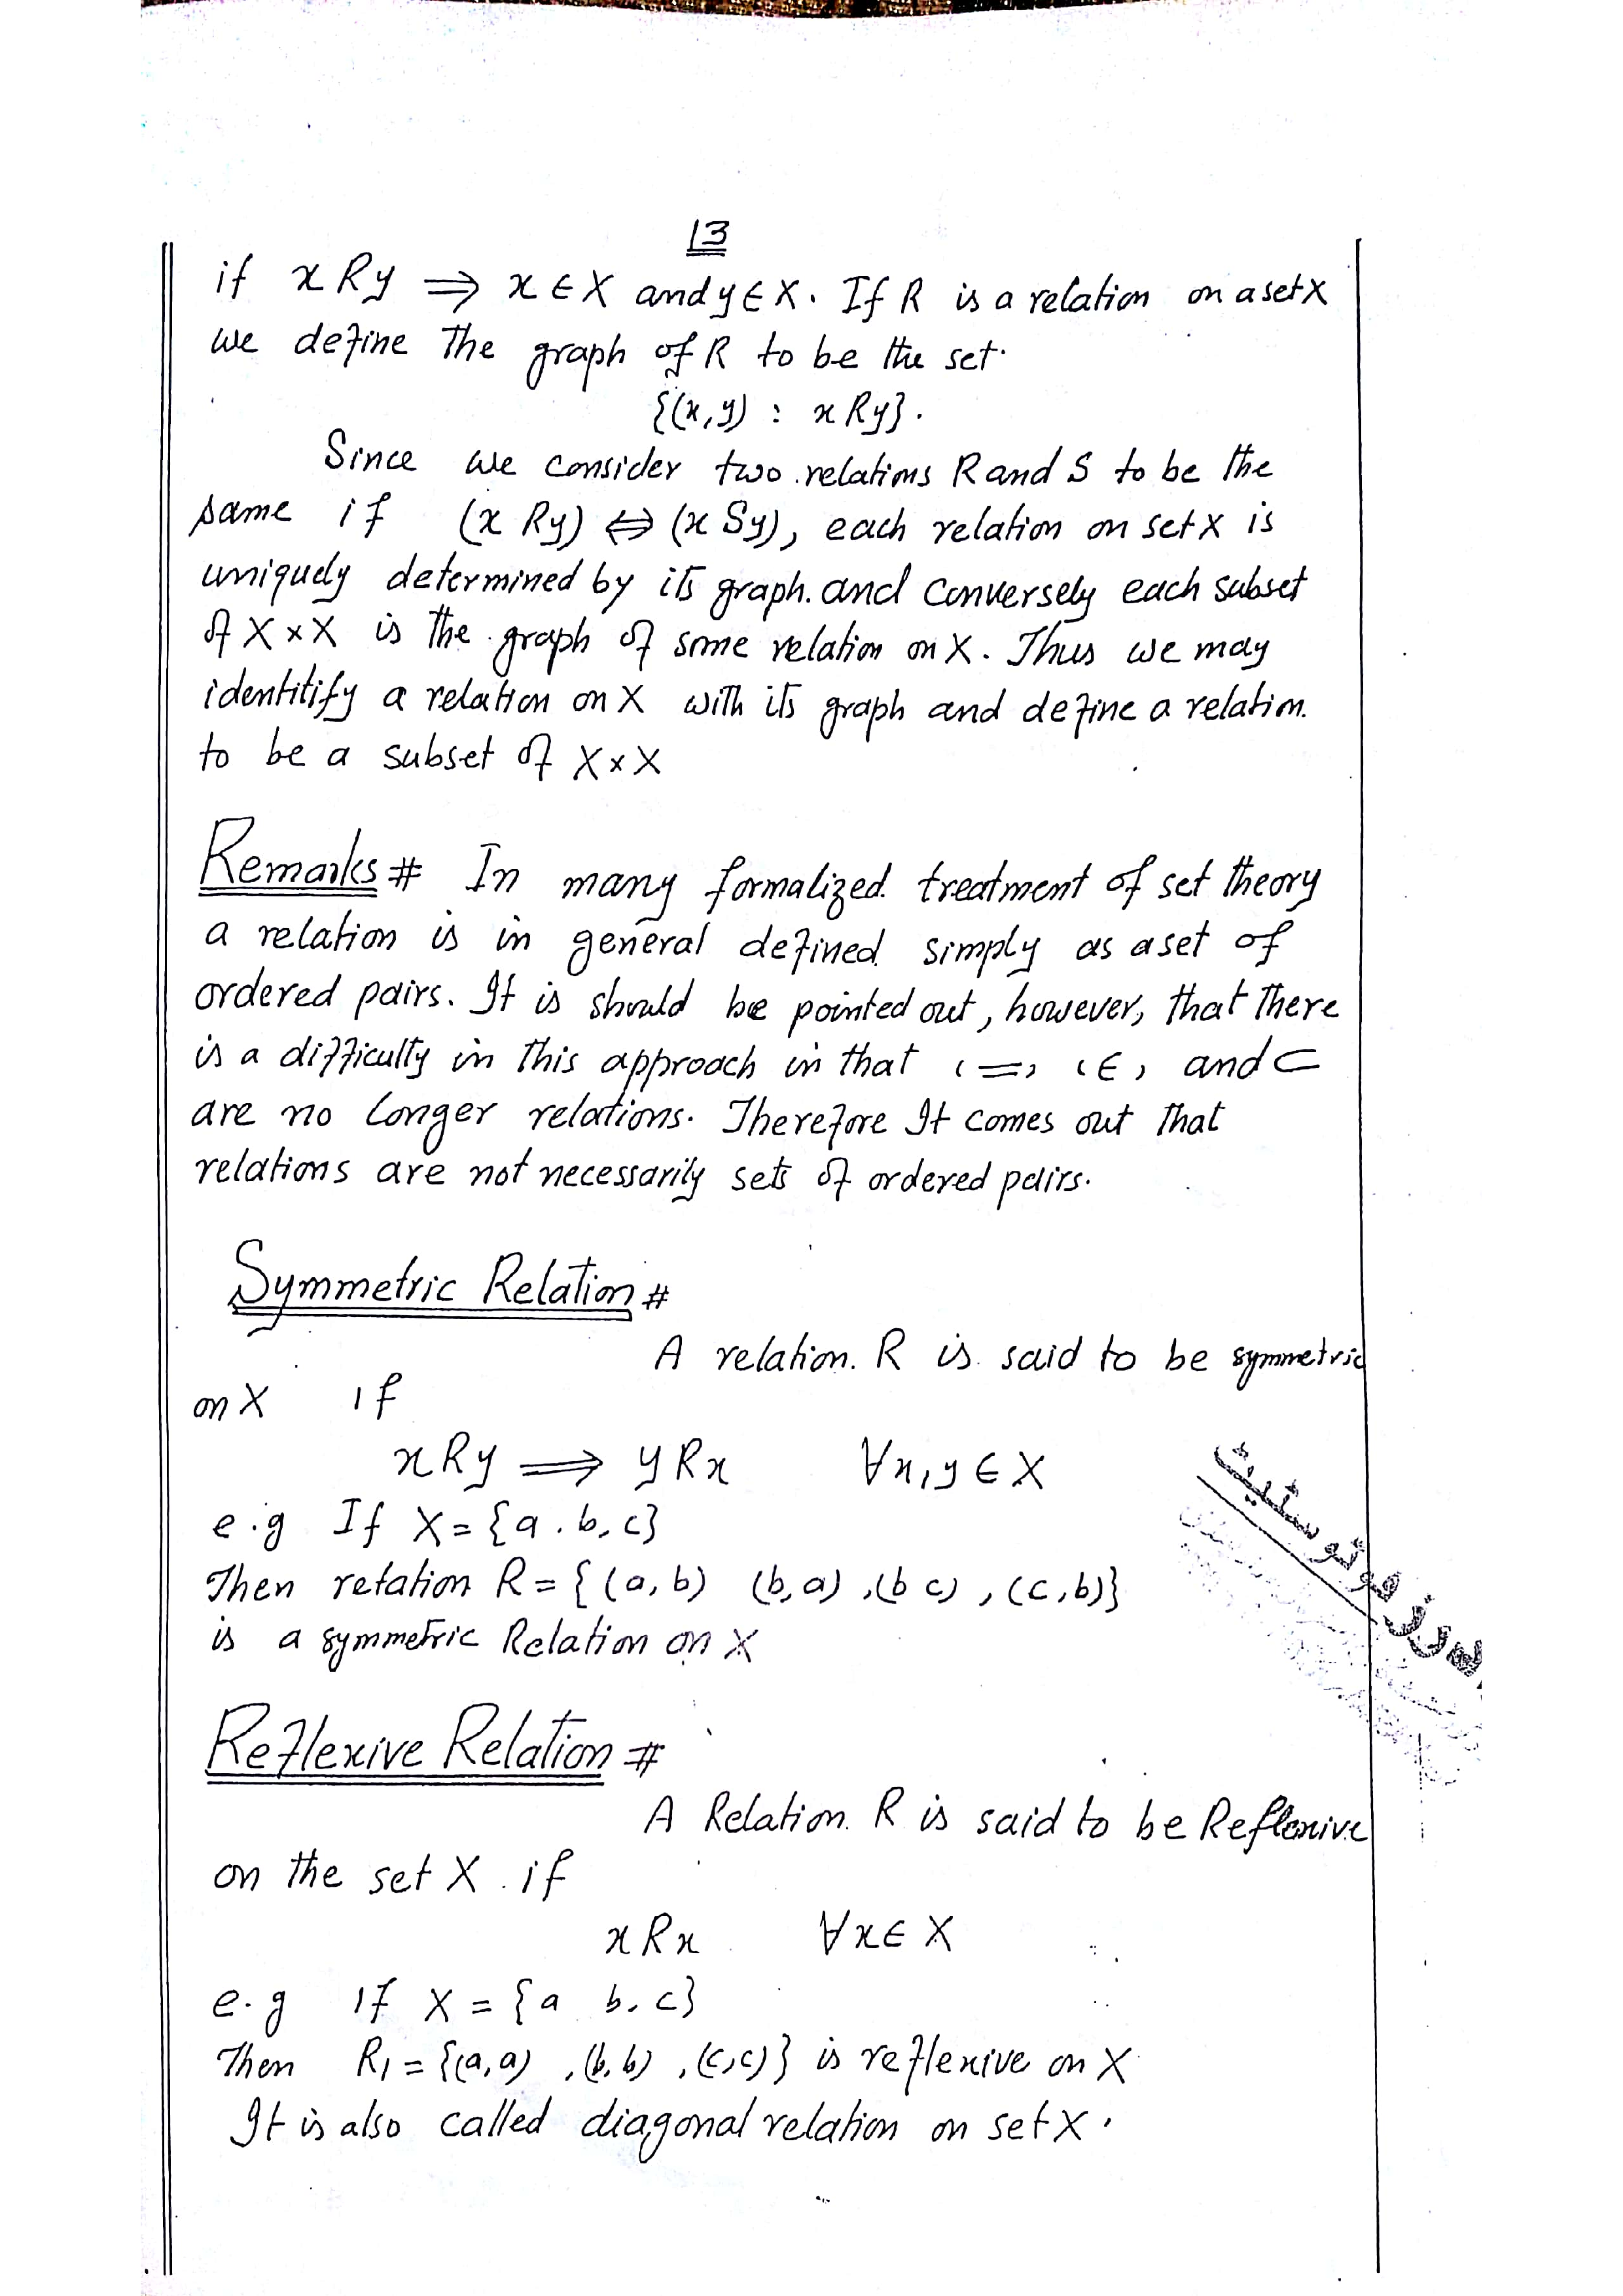 13
if x R y ⟹ x ∈ X and y ∈ X. If R is a relation on a set X
we define The graph of R to be the set.
{(x,y) : x R y}.
Since we consider two relations R and S to be the
same if (x R y) ⇔ (x S y), each relation on set X is
uniquely determined by its graph. and conversely each subset
of X × X is the graph of some relation on X. Thus we may
identitify a relation on X with its graph and define a relation.
to be a subset of X × X
Remarks # In many formalized treatment of set theory
a relation is in general defined simply as a set of
ordered pairs. It is should be pointed out, however, that there
is a difficulty in this approach in that ‘=’ ‘∈’ and ⊂
are no longer relations. Therefore It comes out That
relations are not necessarily sets of ordered pairs.
Symmetric Relation #
A relation. R is said to be symmetric
on X if
x R y ⟹ y R x ∀ x, y ∈ X
e.g If X = {a. b, c}
Then relation R = { (a, b) (b, a) ,(b c) , (c, b)}
is a symmetric Relation on X
Reflexive Relation #
A Relation. R is said to be Reflexive
on the set X if
x R x ∀ x ∈ X
e.g if X = {a b, c}
Then R1 = {(a, a) , (b, b) , (c, c)} is reflexive on X
It is also called diagonal relation on set X.
فوٹوسٹیٹ